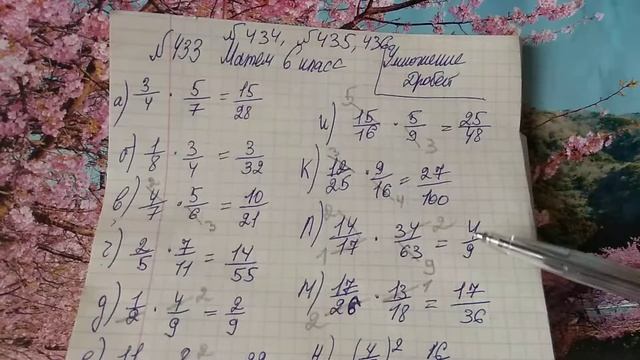 №433 №434, №435, 436
Матем 6 класс
Умножение
Дробей
а) 3/4 · 5/7 = 15/28
б) 1/8 · 3/4 = 3/32
в) 4/7 · 5/6 = 10/21
г) 2/5 · 7/11 = 14/55
д) 1/2 · 4/9 = 2/9
и) 15/16 · 5/9 = 25/48
к) 12/25 · 9/16 = 27/100
л) 14/17 · 34/63 = 4/9
м) 17/26 · 13/18 = 17/36
н) (4/ )² 16